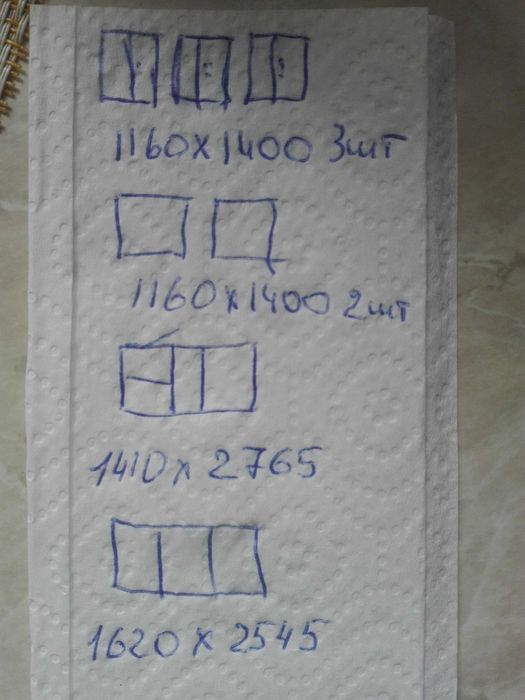 1160x1400 3шт
1160x1400 2шт
1410x2765
1620x2545